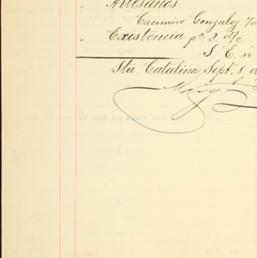 Artesanos
Casimiro Gonzalez
Existencia pa. d. d/c
S. E. ú
Sta Catalina Sept. 8. a